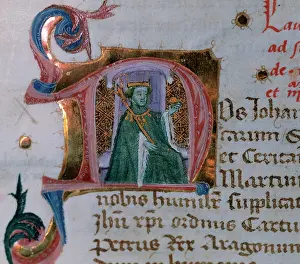 Lau
ad s
de
et m
NOs Joha
carum S
et Cerica
Martini
nobis humilit supplicat
Ihu xpi ordinis Cartu
Petrus Rex Aragonum